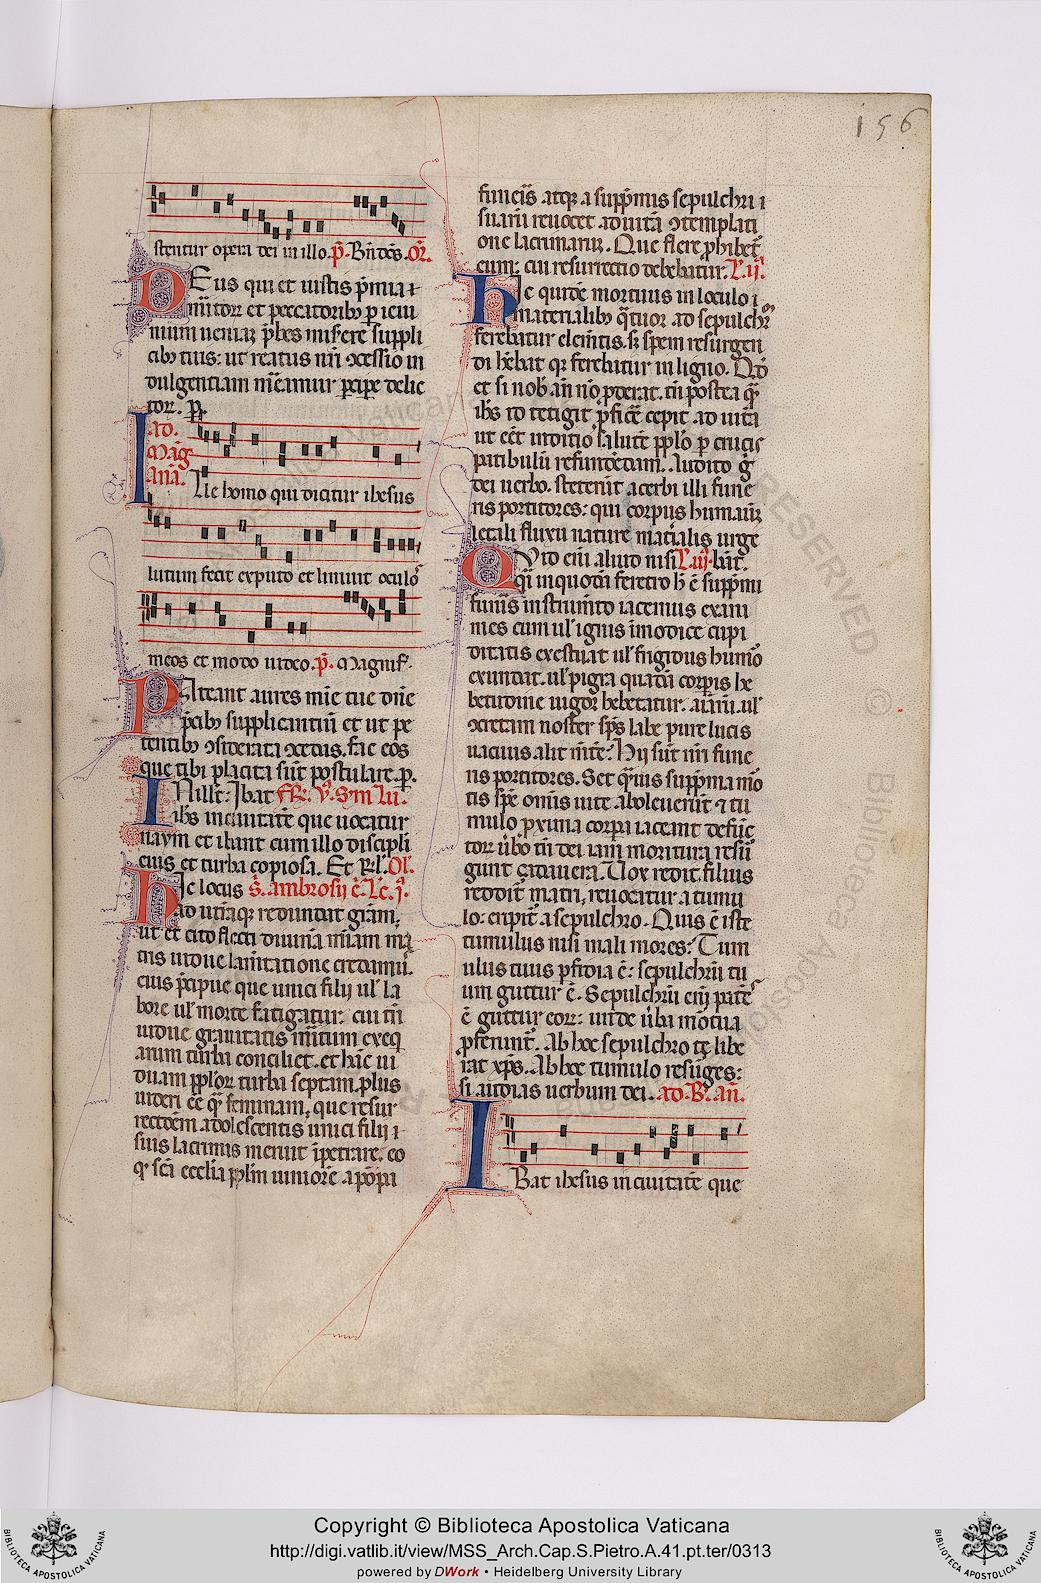 156
stentur opera dei in illo. p̄. Bn̄dc̄s. Or̄.
DEus qui et iustis p̄mia ⁊
mūtor et peccatorib; p ieiu
nium ueniaꝫ p̄bes miserere suppli
cib; tuis: ut reatus nr̄i ꝯfessio in
dulgentiam
tor. p.
Ad.
Mag̅
ana.
Ille homo qui dicitur ihesus
lutum fecit exputo et liniuit oculoſ
meos et modo uideo. p̄. Magnif.
PAteant aures mīe tue dn̄e
p̄cib; supplicantiū et ut pe
tentib; ꝯsiderata
que tibi placita sūt postulare. p.
INill̄t: Ibat Fr̄. v̄. S̄m lu.
ihs inciuitatē que uocatur
naym et ibant cum illo discipli
eius et turba copiosa. Et Rl̄. Ol.
HIc locus s̄. ambrosij ē. Lc̄. j.
ad utrāq; redundat grām,
ut et cito flecti diuinā mīam ma
tris uidue lamētatione credamꝰ.
eius p̄cipue que unici filij ul̄ la
bore ul̄ morte fatigatur: cui tn̄
uidue grauitatis
arum turba conciliet. et hāc ui
duam pplōr turba septam. plus
uideri eē q̄ feminam, que resur
rectōem adolescentis unici filij i
suis lacrimis meruit īpetrare. eo
q sc̄a ecclīa ppl̄m iuniorē a pōpa
funeris atq; a supp̄mis sepulchri i
suarū reuocet ad uitā ꝯtemplati
one lacrimarū. Que flere phibet̄
eum: cui resurrectio debebatur. L. ij.
HIc quidē mortuus in loculo i
materialib; q̄tuor ad sepulchꝝ
ferebatur elemētis. sꝫ spem resurgen
di hēbat qꝫ ferebatur in ligno. Qd̄
et si nob̄ an̄ nō pderat. tn̄ postea q̄
ihs id tetigit pficē cepit ad uitā
ut eēt inditio salutē pplo p crucis
patibulū refundēdam. Audito g
dei uerbo. steterūt acerbi illi fune
ris portitores: qui corpus humanū
letali fluxu nature mat̄ialis urge
QUid enī aliud nisi L. iij. bāt.
qi inquodā feretro h̄ ē supp̄mi
funeris īnstrumēto iacemus exani
mes cum ul̄ ignis īmodice cupi
ditatis exestuat ul̄ frigidus humō
exundat. ul̄ pigra quadā corpis he
betudine uigor hebetatur. aīarū. ul̄
noster sp̄s labe pure lucis
uacuus alit mētē: Hij sūt nr̄i fune
ris portitores. Set q̄uis supp̄ma mō
tis spē omīs uite aboleuerit ⁊ tu
mulo pxima corpa iaceant defūc
tor ūbo tn̄ dei iam moritura resū
gunt cadauera. Uox redit, filius
reddit̄ matri, reuocatur a tumu
lo: eripit̄ a sepulchro. Quis ē iste
tumulus nisi mali mores: Tum
ulus tuus pfidia ē: sepulchrū tu
um guttur ē. Sepulchrū enī patēs
ē guttur eor: unde ūba mōtua
pferunt̄. Ab hoc sepulchro te libe
rat xp̄s. Ab hoc tumulo resūges:
si audias uerbum dei. ad. B. an̄.
IBat ihesus in ciuitatē que
Copyright © Biblioteca Apostolica Vaticana
http://digi.vatlib.it/view/MSS_Arch.Cap.S.Pietro.A.41.pt.ter/0313
powered by DWork • Heidelberg University Library